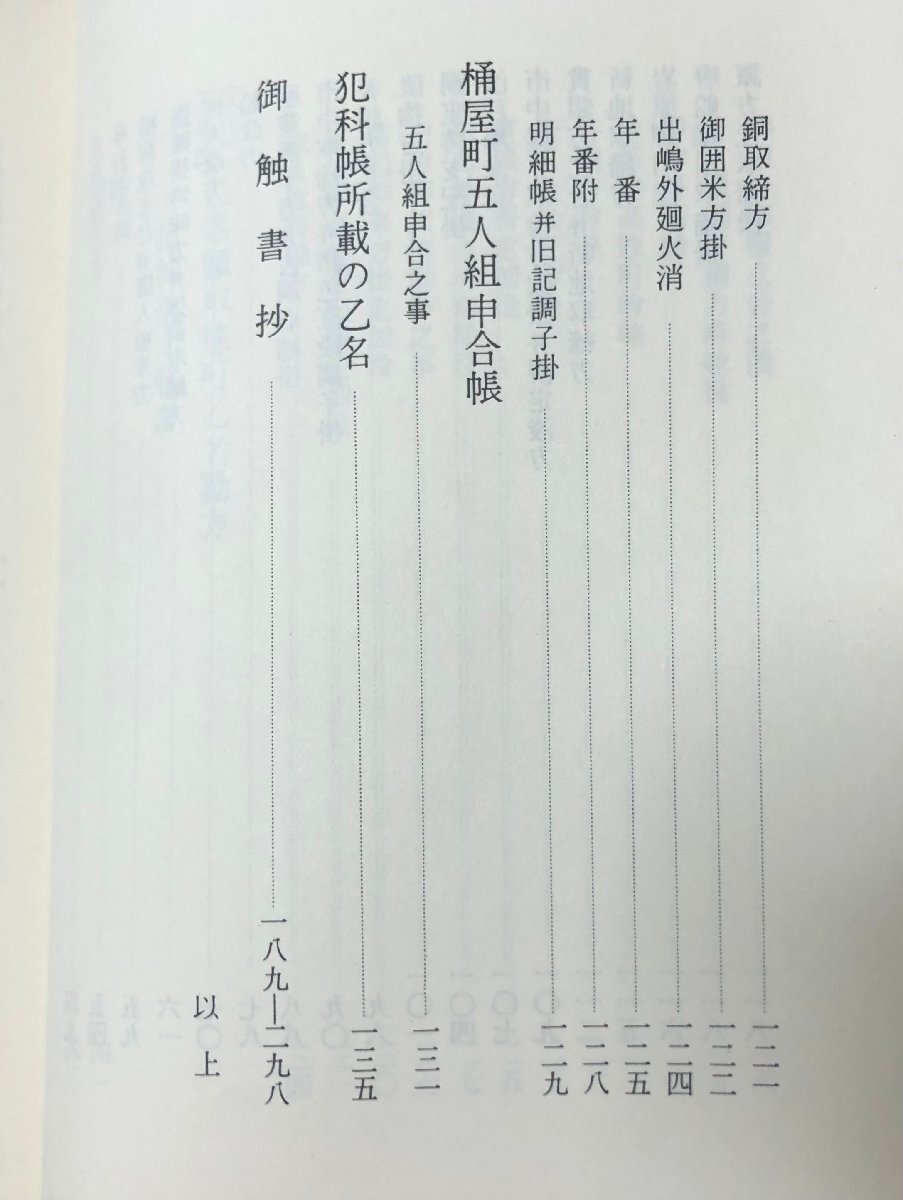 銅取締方………一二一
御囲米方掛………一二二
出嶋外廻火消………一二四
年　番………一二五
年番附………一二八
明細帳并旧記調子掛………一二九
桶屋町五人組申合帳
五人組申合之事………一三一
犯科帳所載の乙名………一三五
御触書抄………一八九―二九八
以上